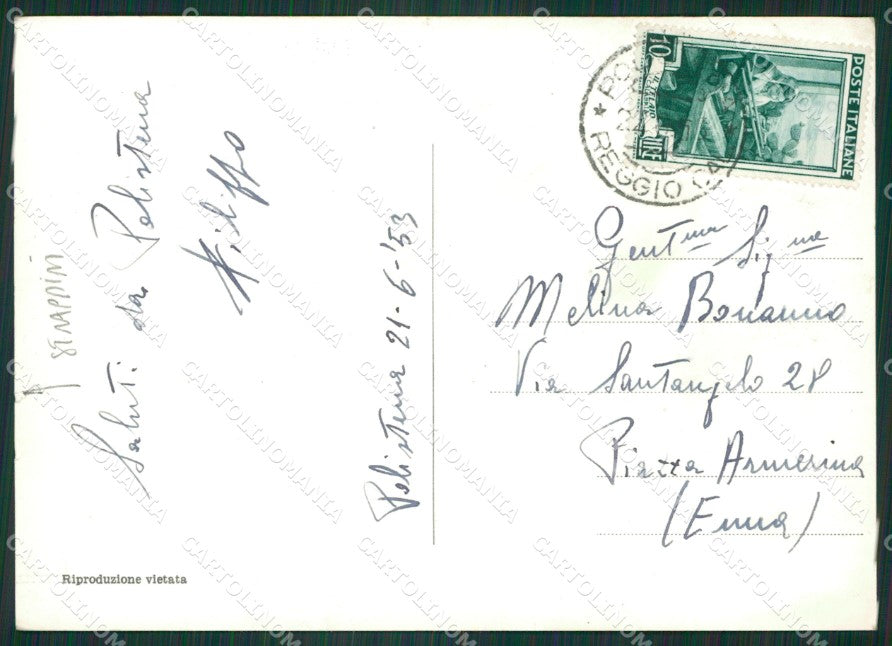 Saluti da Polistena
Filippo
Polistena 21-6-'53
STRAPPINI
Riproduzione vietata
10
LIRE
POSTE ITALIANE
REGGIO CA
Gent.ma Sig.na
Melina Bonanno
Via Santangelo 28
Piazza Armerina
(Enna)
CARTOLINOMANIA